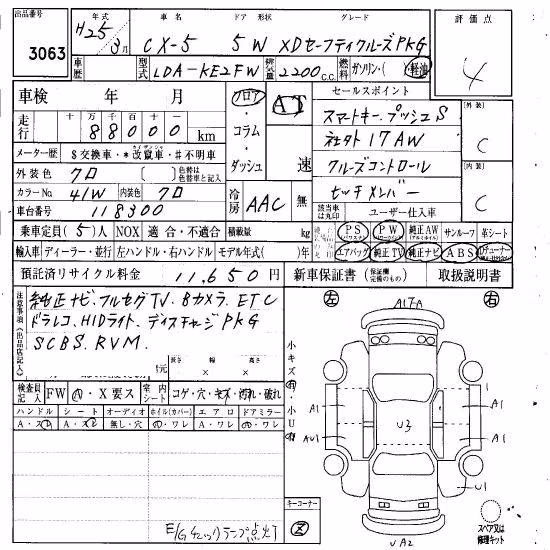 出品番号 年式 車名 ドア 形状 グレード 評価点
3063 H25 3月 CX-5 5W XDセーフティクルーズPKG 4
車歴 型式 LDA-KE2FW 排気量 2200 c.c. 燃料 ガソリン・( ) 軽油
車検 年 月 フロア AT セールスポイント
走行 十 万 千 百 十
88000 km コラム スマートキー プッシュS 外装 C
メーター歴 $交換車・*改竄車・#不明車 ダッシュ 速 社外17AW
外装色 クロ ( ) 色替は色替車名と記入 クルーズコントロール 内装 C
カラーNo. 41W 内装色 クロ 冷房 AAC 無
車台番号 118300 該当車は丸印 ユーザー仕入車
乗車定員 (5)人 NOX 適合・不適合 積載量 kg PS PW 純正AW サンルーフ 革シート
輸入車 ディーラー・並行 左ハンドル・右ハンドル モデル年式( )年 エアバッグ 純正TV 純正ナビ ABS
預託済リサイクル料金 11,650円 新車保証書 (保証欄完備のもの) 取扱説明書
注意事項(出品店記入)
純正ナビ.フルセグTV.Bカメラ.ETC
ドラレコ.HIDライト.ディスチャージPKG
SCBS.RVM.
長さ 幅 高さ
× ×
検査員記入 FW A・X要ス 室内シート コゲ・穴・キズ・汚れ・破れ
ハンドル シート オーディオ ホイル(カバー) エアロ ドアミラー
A・ス A・ス 無し・穴 A・ワレ A・ワレ A・ワレ
E/Gチェックランプ点灯
左 右
ALTA
小キズ有・小U有
A1 1
AU1 U3 A1
U1
UA2
キーコーナー
スペア又は修理キット